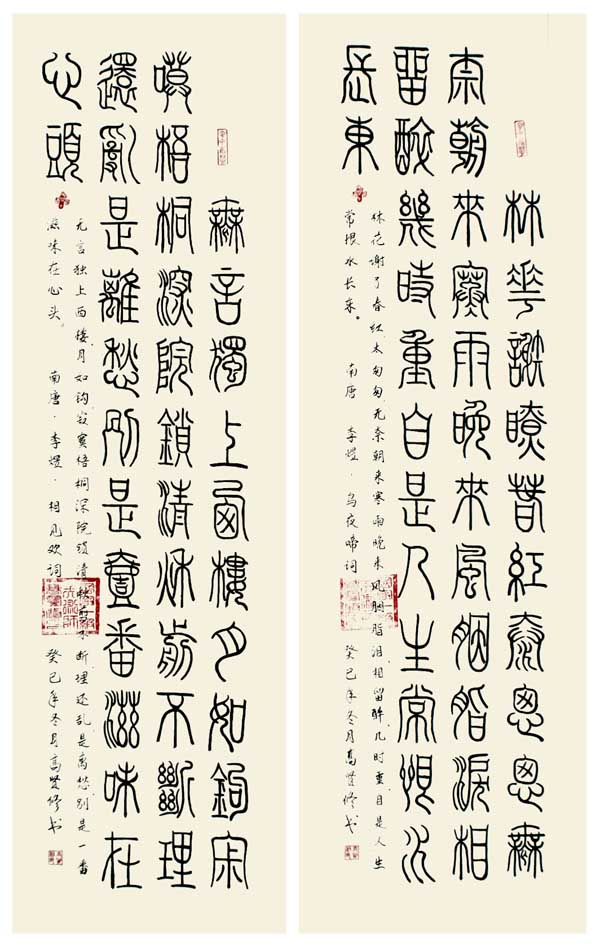 林華謝瞭春紅泰悤悤無
柰朝來寒雨晚來風胭脂淚相
留醉幾時重自是人生常恨水
長東
林花谢了春红太匆匆无奈朝来寒雨晚来风胭脂泪相留醉几时重自是人生
常恨水长东。 南唐·李煜·乌夜啼词 癸巳年冬月高贤修书
無言獨上西樓月如鉤寂
嗼梧桐深院鎖清秋剪不斷理
還亂是離愁別是壹番滋味在
心頭
无言独上西楼月如钩寂寞梧桐深院锁清秋剪不断理还乱是离愁别是一番
滋味在心头。 南唐·李煜·相见欢词 癸巳年冬月高贤修书